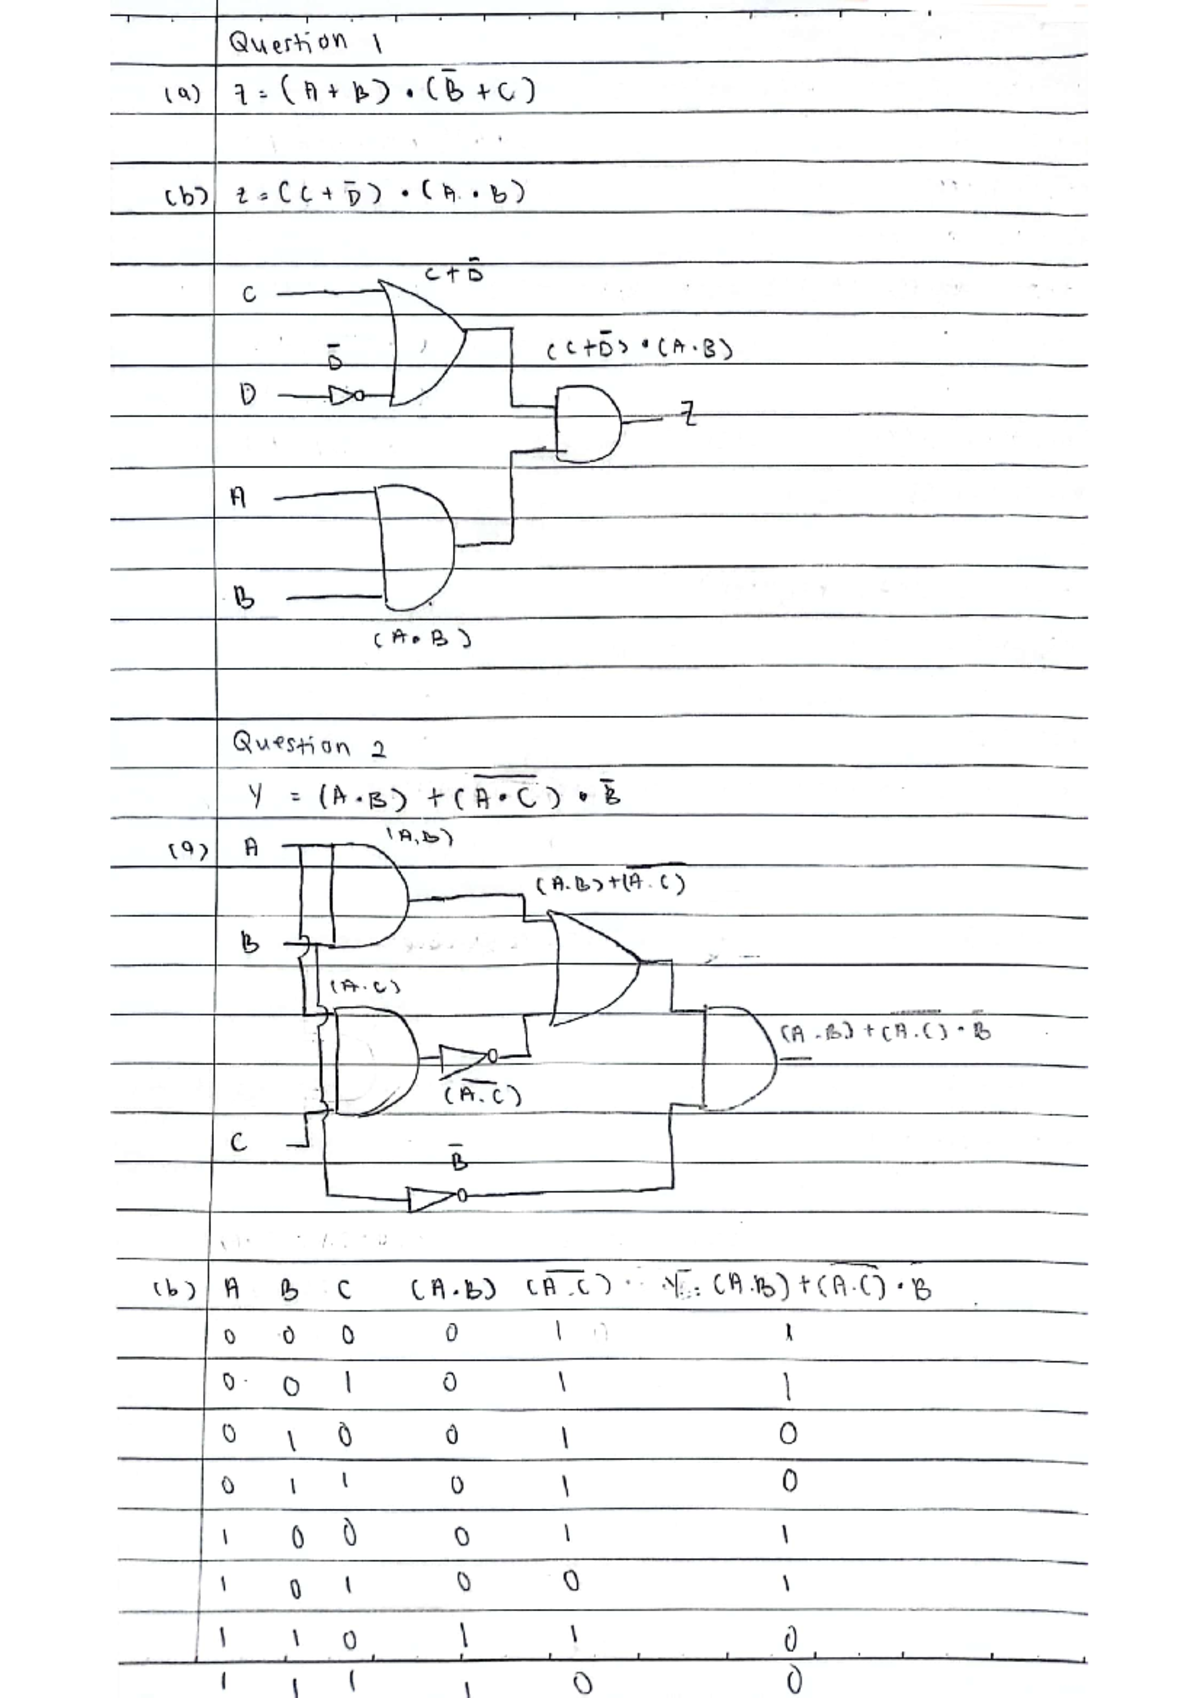 Question 1
(a) Z = (A + B) • (B̅ + C)
(b) Z = (C + D̅) • (A • B)
C + D̅
C
D̅
(C + D̅) • (A . B)
D
Z
A
B
(A • B)
Question 2
Y = (A • B) + (A̅ •̅ C̅) • B̅
(a) A
(A.B)
(A.B) + (A̅ .̅ C̅)
B
(A.C)
(A.B) + (A̅ .̅ C̅) • B̅
(A̅ .̅ C̅)
C
B̅
(b) A B C (A.B) (A̅ .̅ C̅) Y = (A.B) + (A̅ .̅ C̅) • B̅
0 0 0 0 1 1
0 0 1 0 1 1
0 1 0 0 1 0
0 1 1 0 1 0
1 0 0 0 1 1
1 0 1 0 0 1
1 1 0 1 1 0
1 1 1 1 0 0